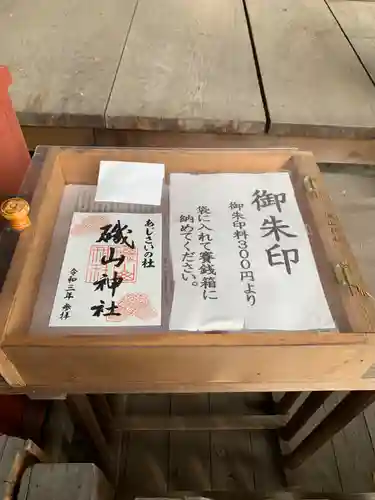 御朱印
御朱印料300円より
袋に入れて賽銭箱に
納めてください。
あじさいの社
磯山神社
令和三年
拝